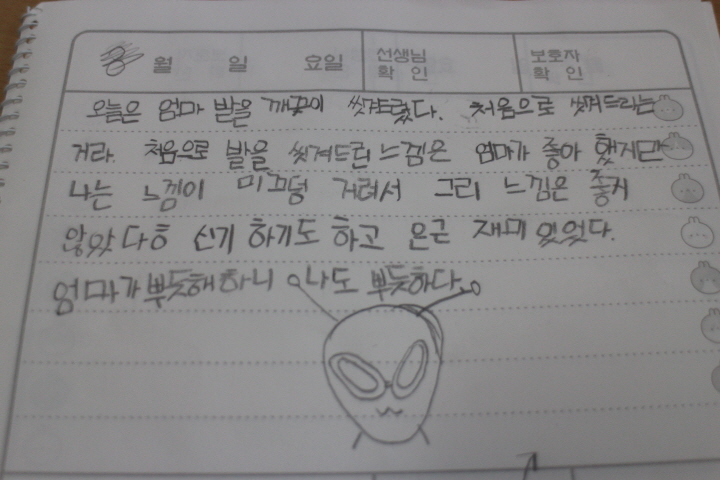 월 일 요일 선생님 확 인 보호자 확 인
오늘은 엄마 발을 깨끗이 씻겨드렸다. 처음으로 씻겨드리는
거라. 처음으로 발을 씻겨드린 느낌은 엄마가 좋아 했지만
나는 느낌이 미끄덩 거려서 그리 느낌은 좋지
않았다 신기 하기도 하고 은근 재미 있었다.
엄마가 뿌듯해하니 나도 뿌듯하다.